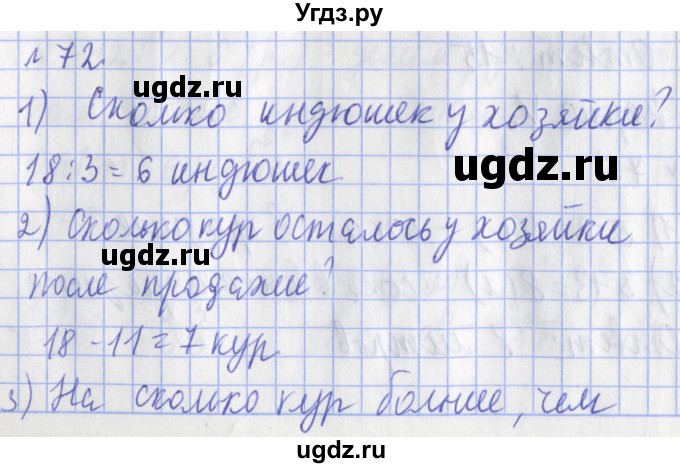 Угdz.ру
№72
ugdz.ru
1) Сколько индюшек у хозяйки?
ugdz.ru
18:3=6 индюшек
2) Сколько кур осталось у хозяйки
ugdz.ru
после продажи?
ugdz.ru
18-11=7 кур
3) На сколько кур больше, чем
ugdz.ru